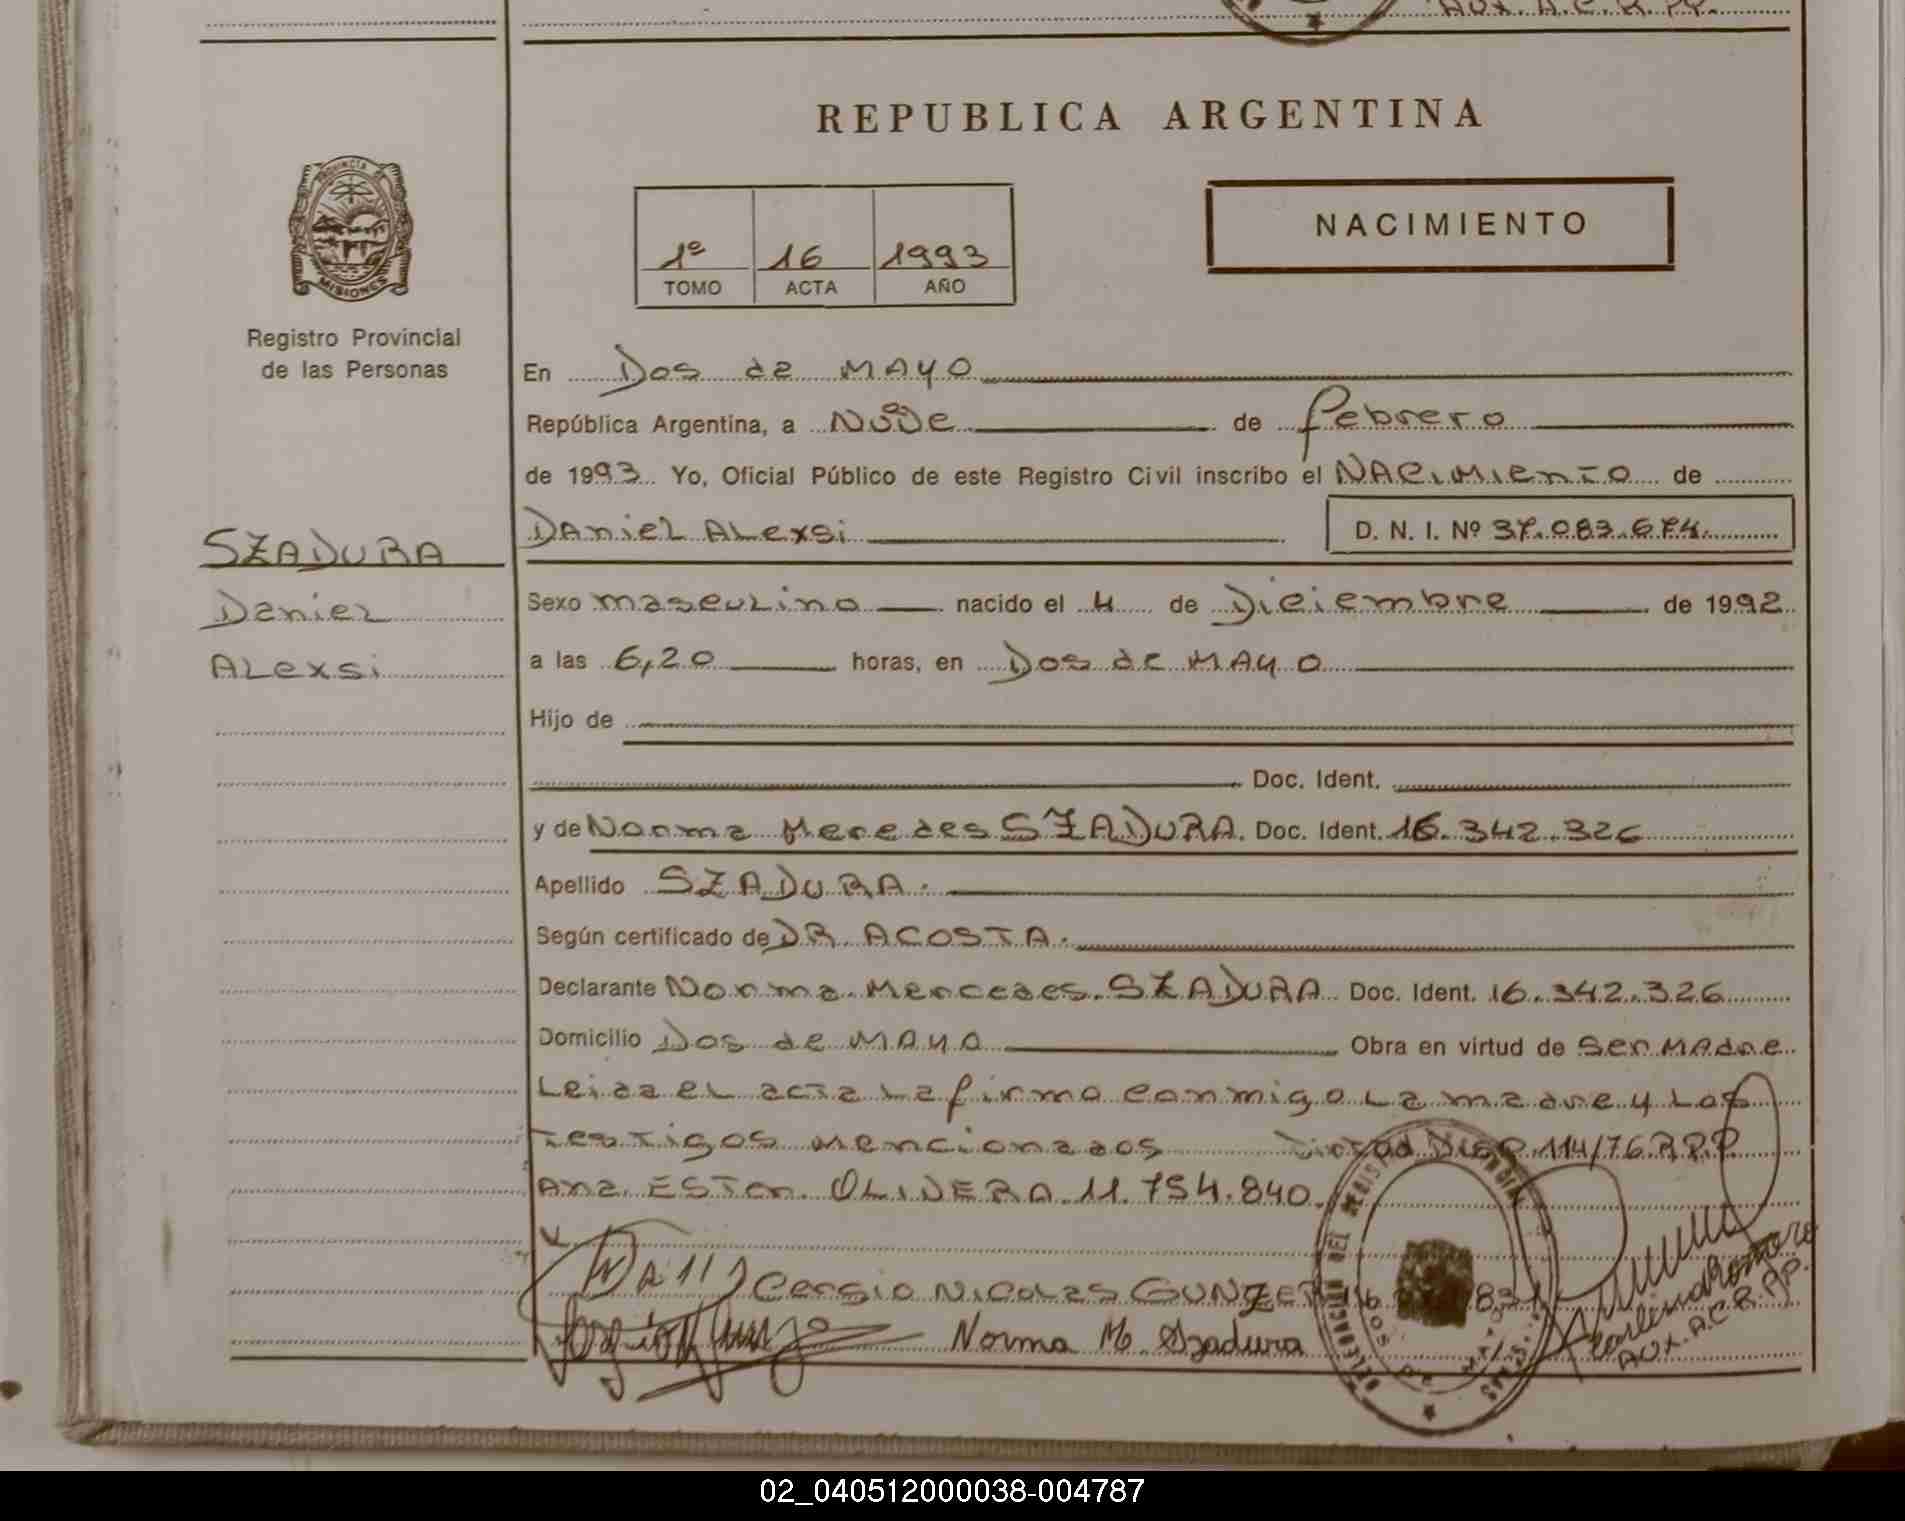 AUX. A.C.R.PP.
REPUBLICA ARGENTINA
PROVINCIA DE
MISIONES
NACIMIENTO
1º 16 1993
TOMO ACTA AÑO
Registro Provincial
de las Personas
En Dos de MAYO
República Argentina, a Nueve de febrero
de 1993 Yo, Oficial Público de este Registro Civil inscribo el NACIMIENTO de
DANIEL ALEXSI D. N. I. Nº 37.083.674
SZADURA
Daniel
ALexsi
Sexo masculino nacido el 4 de Diciembre de 1992
a las 6,20 horas, en Dos de MAYO
Hijo de
Doc. Ident.
y de Norma Mercedes SZADURA. Doc. Ident. 16.342.326
Apellido SZADURA.
Según certificado de DR ACOSTA.
Declarante Norma Mercedes SZADURA Doc. Ident. 16.342.326
Domicilio Dos de MAYO Obra en virtud de Ser MAdre
Leida el acta la firma conmigo La madre y Los
Testigos mencionados Disp. 114/76.R.P.P.
Ana ESTer OLIVERA 11.754.840
y
Cergio Nicolas GUNZER
Norma M. Szadura
DELEGACION DEL REGISTRO
DOS DE MAYO
AUX.A.C.R.PP.
02_040512000038-004787